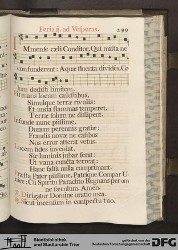 Feria ij. ad Vesperas. 299
Mmense cæli Conditor, Qui mixta ne
confunderent: Aquæ fluenta dividens, Cæ
lum dedisti limitem.
Firmans locum cælestibus,
Simulque terræ rivulis:
Ut unda flammas temperet,
Terræ solum ne dissipent.
Infunde nunc piissime,
Donum perennis gratiæ:
Fraudis novæ ne casibus
Nos error atterat vetus.
Lucem fides
Sic luminis jubar ferat:
Ut vana cuncta terreat,
Hanc falsa nulla comprimant.
Præsta Pater piissime, Patrique Compar U
nice: Cū Spiritu Paraclito Regnans per om
ne sæculum. Amen.
Dirigatur Domine oratio mea.
Sicut incensum in conspectu tuo.
Stiftsarchiv
und Staatsarchiv Trier
gefördert durch
DFG
Deutsche
Forschungsgemeinschaft